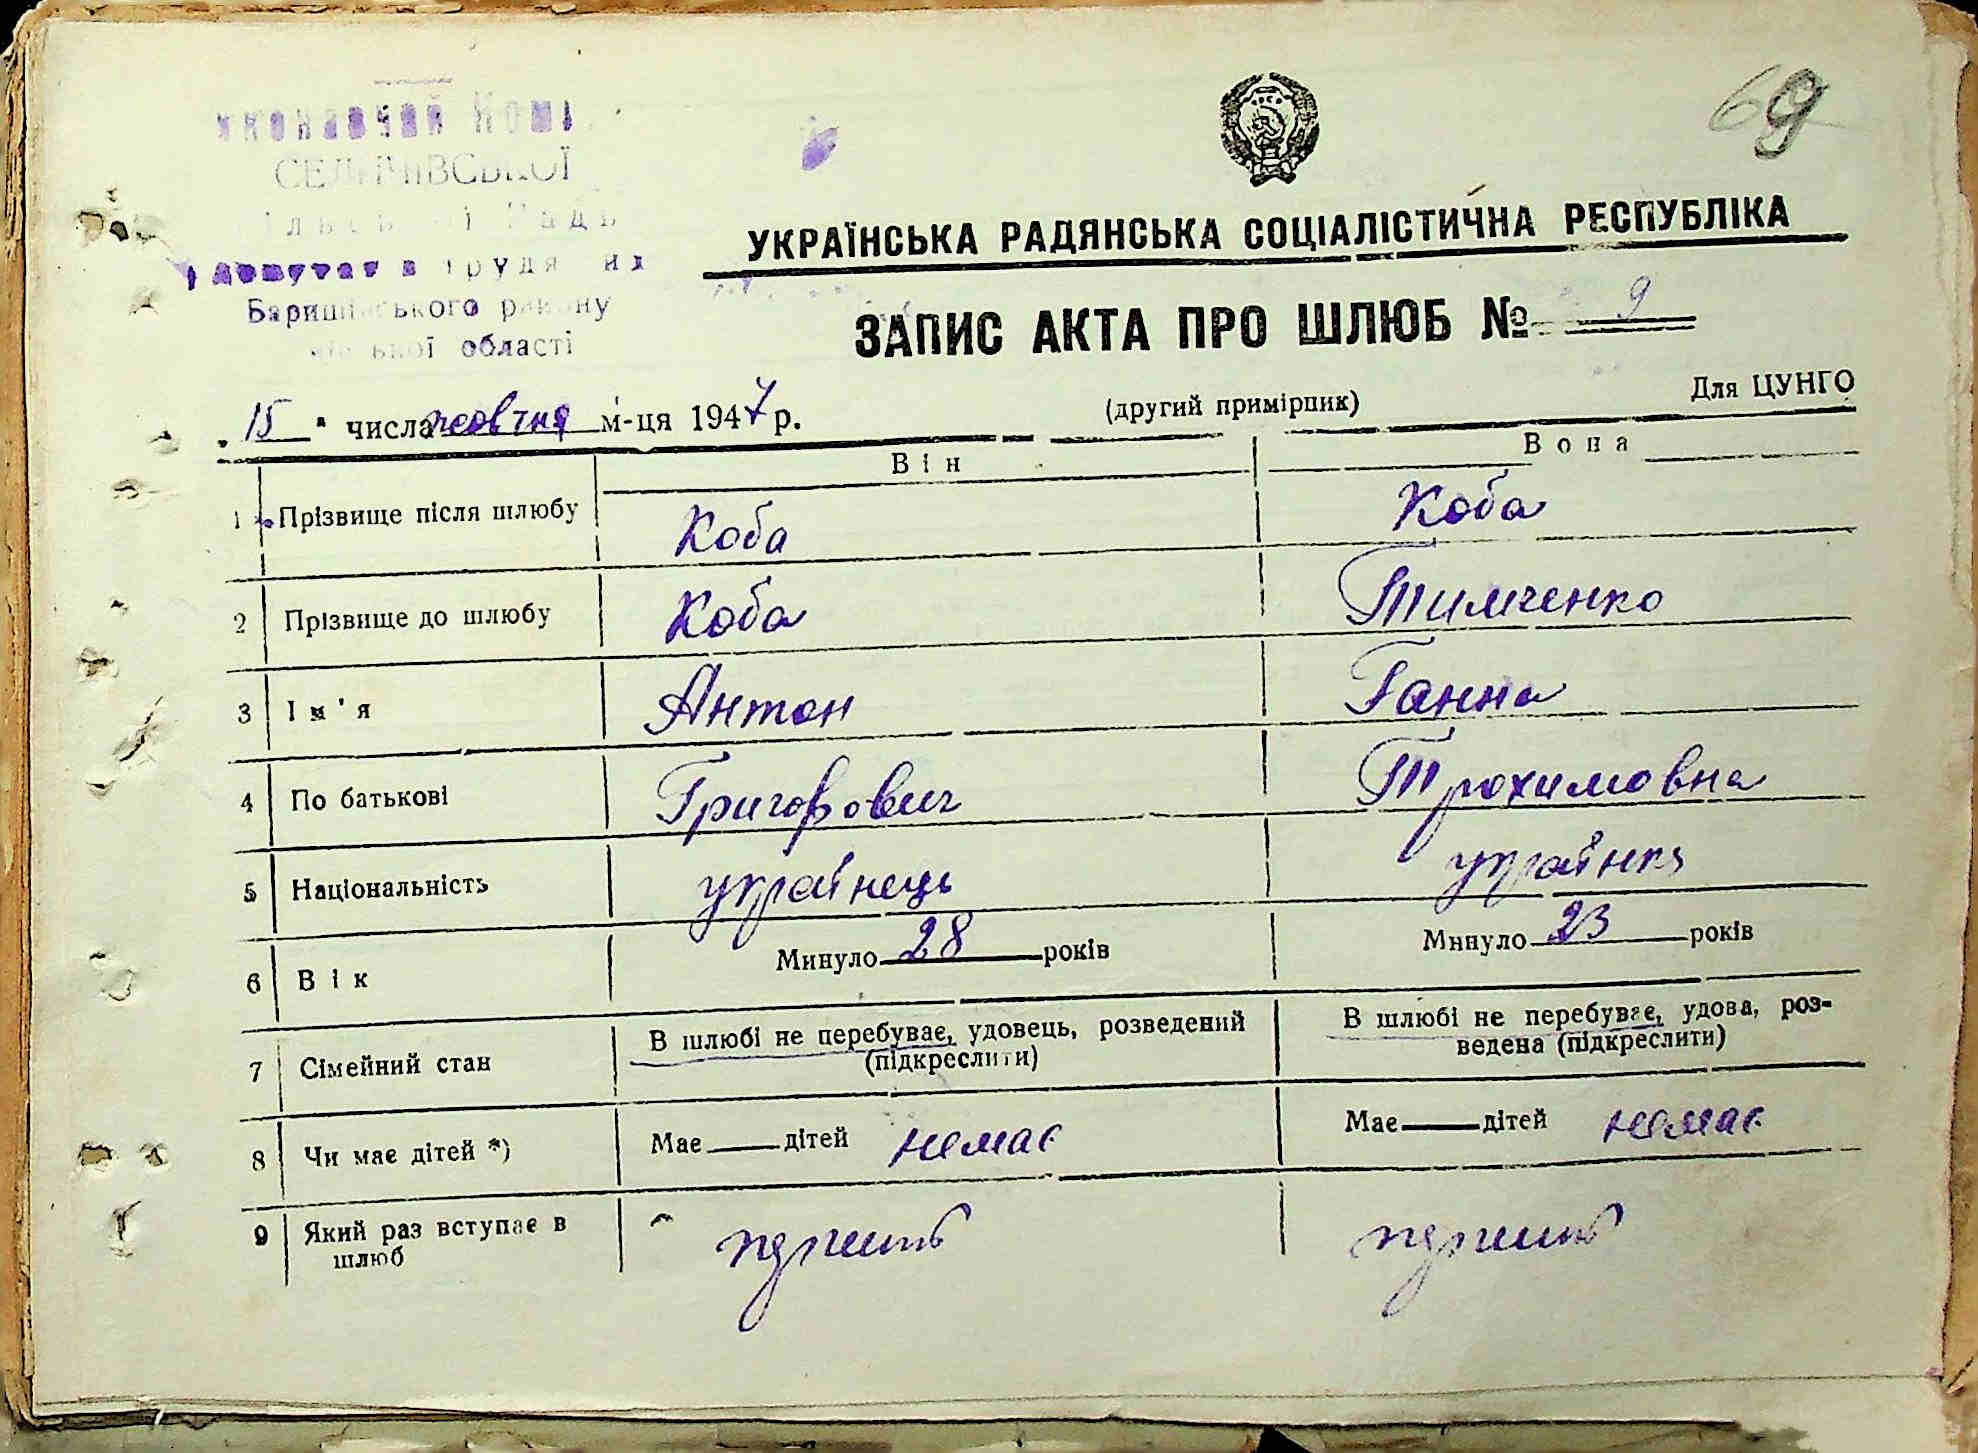 69
СЕЛИЧІВСЬКОЇ
області
УКРАЇНСЬКА РАДЯНСЬКА СОЦІАЛІСТИЧНА РЕСПУБЛІКА
ЗАПИС АКТА ПРО ШЛЮБ № 9
„15" числа жовтня м-ця 1947 р. (другий примірник) Для ЦУНГО
Він Вона
1 Прізвище після шлюбу Коба Коба
2 Прізвище до шлюбу Коба Тимченко
3 Ім'я Антон Ганна
4 По батькові Григорович Трохимовна
5 Національність українець українка
6 Вік Минуло 28 років Минуло 23 років
7 Сімейний стан В шлюбі не перебуває, удовець, розведений (підкреслити) В шлюбі не перебуває, удова, роз-
ведена (підкреслити)
8 Чи має дітей *) Має — дітей немає Має — дітей немає
9 Який раз вступає в
шлюб